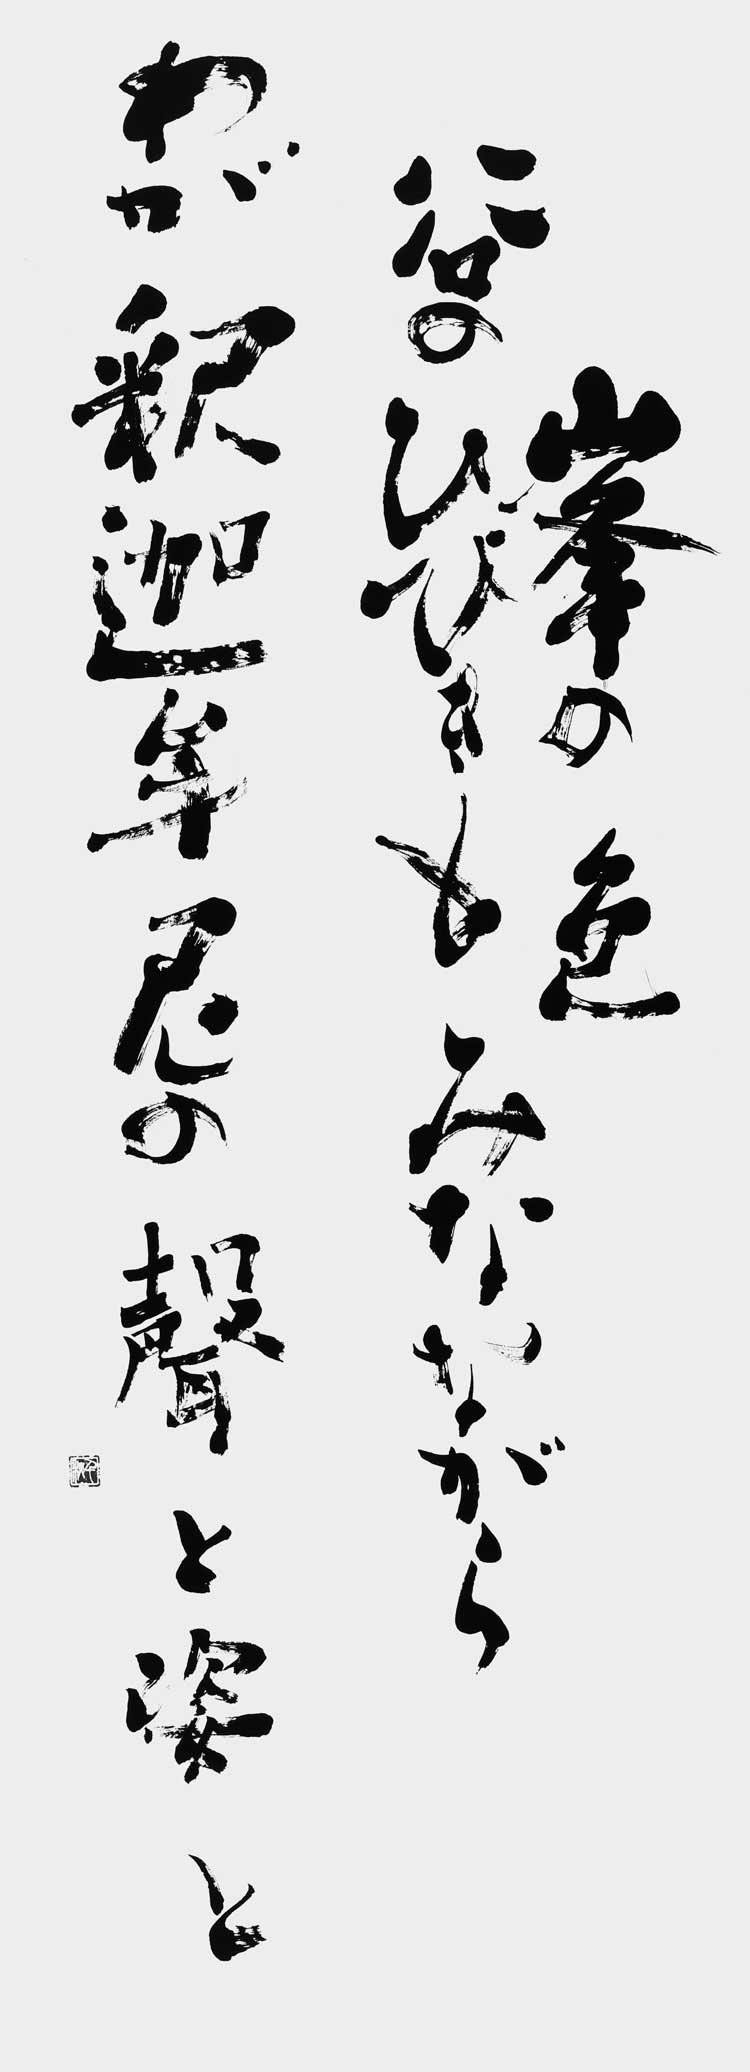 峯の色
谷のひびきもみなながら
わが釈迦牟尼の聲と姿と